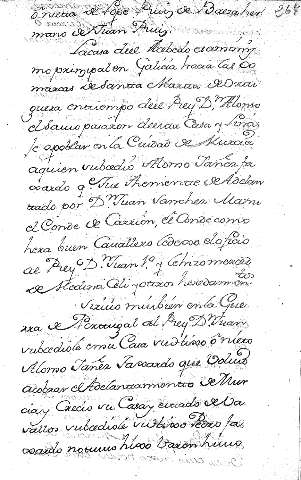 ô nieta de Lope Ruiz de Baeza her
mano de Juan Ruiz.
La casa de el
mo principal en Galicia hacia las Co
marcas de Santa Marta de
guera en tiempo de el Rey Dn. Alonso
el Savio pasaron de esta Casa y
se a poblar en la Ciudad de Murcia
a quien subcedió Alonso Yañez fa
xardo q. fue them.te de Adelan
tado por Dn. Juan Sanchez Manu.l
el Conde de Carrión, el Conde como
hera buen Cavallero
al Rey Dn. Juan 1º y le hizo merced
de Medina Celi y otros heredam.tos
Sirvió mui bien en la Gue
rra de Portugal al Rey Dn. Juan,
subcedióle en su Casa su hijo ô nieto
Alonso Yañez Faxardo que volvió
a cobrar el Adelantamiento de Mur
cia y Creció su Casa y estado de Va
sallos subcedióle su hijo Pedro Fa
xardo no tuvo hijo Varon hizo,